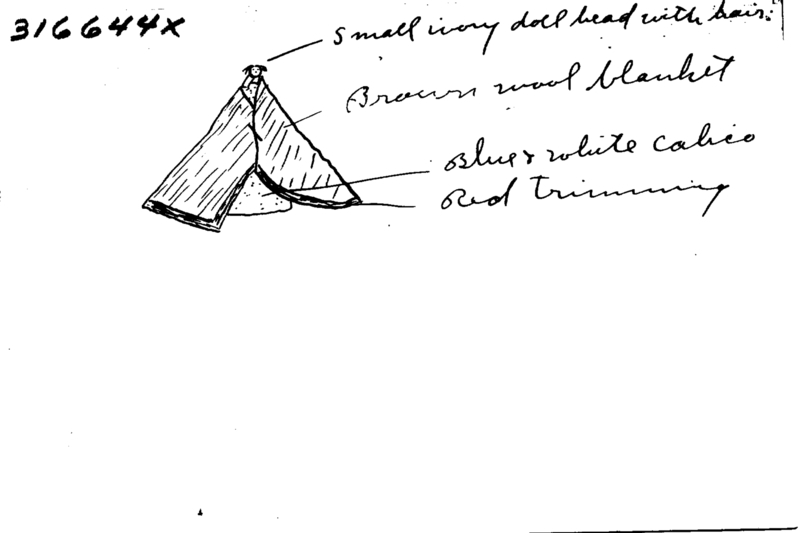 316644X
Small ivory doll head with hair.
Brown wool blanket
Blue & white calico
Red trimming